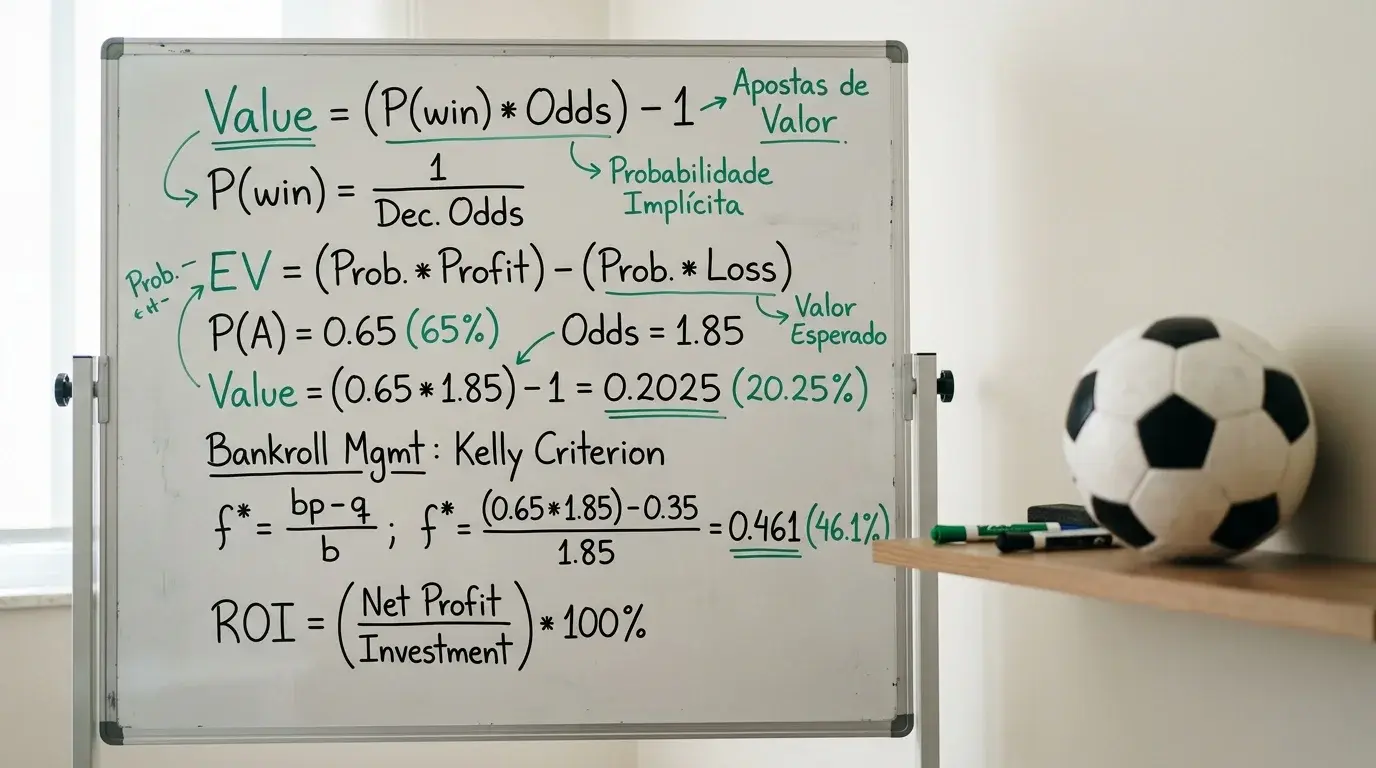 Value = (P(win) * Odds) − 1 → Apostas de Valor
P(win) = 1 / Dec. Odds
Probabilidade Implícita
Prob. −
EV = (Prob. * Profit) − (Prob. * Loss)
Valor Esperado
P(A) = 0.65 (65%)
Odds = 1.85
Value = (0.65 * 1.85) − 1 = 0.2025 (20.25%)
Bankroll Mgmt: Kelly Criterion
f* = bp − q / b ; f* = (0.65*1.85) − 0.35 / 1.85 = 0.461 (46.1%)
ROI = (Net Profit / Investment) * 100%